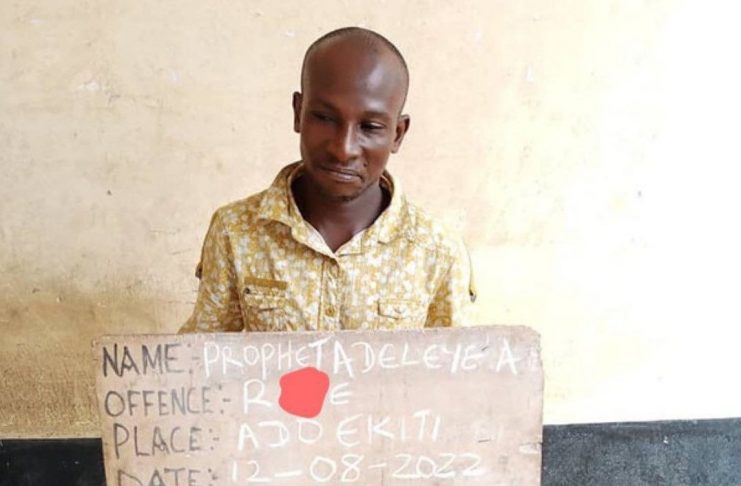 NAME: PROPHET ADELEYE A
OFFENCE:- R E
PLACE:- ADO EKITI
DATE:- 12-08-2022